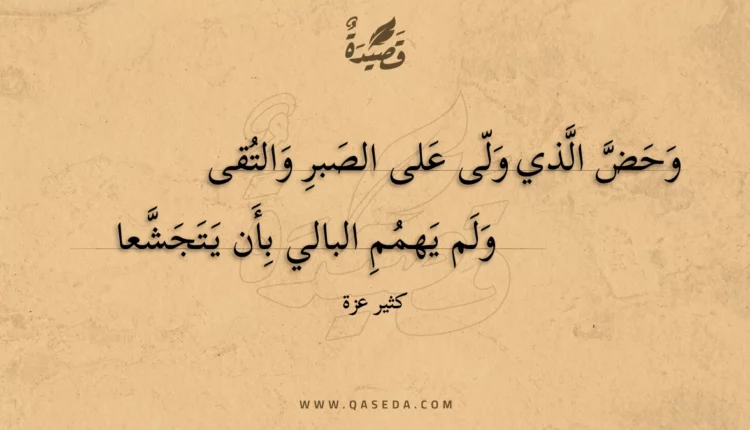 قَصِيدَةٌ
وَحَضَّ الَّذي وَلّى عَلى الصَبرِ وَالتُقى
وَلَم يَهمُمِ البالي بِأَن يَتَجَشَّعا
كثير عزة
WWW.QASEDA.COM